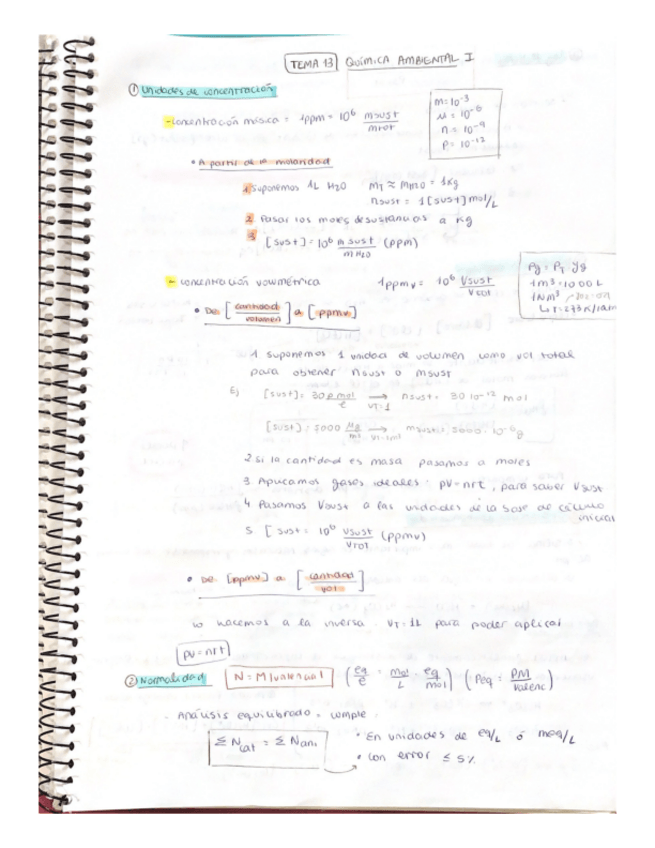 TEMA 13 QUÍMICA AMBIENTAL I
① Unidades de concentración
- Concentración másica = 1ppm = 10⁶ msust/mtot
m = 10⁻³
μ = 10⁻⁶
n = 10⁻⁹
p = 10⁻¹²
• A partir de la molaridad
1. Suponemos 1L H2O MT ≈ MH2O = 1Kg
nsust = 1[sust] mol/L
2. Pasar los moles de sustancias a mg
3. [sust] = 10⁶ m sust/m H2O (ppm)
- Concentración volumétrica 1ppmv = 10⁶ Vsust/Vtot
Pg = PT · yg
1m³ = 1000L
1Nm³
• De [cantidad/volumen] a [ppmv]
1 suponemos 1 unidad de volumen como vol total
para obtener nsust o msust
Ej [sust] = 30 p mol/l → VT=1 nsust = 30·10⁻¹² mol
[sust] = 5000 μg/m³ → 5000·10⁻⁶ g
2. Si la cantidad es masa pasamos a moles
3. Aplicamos gases ideales: pV = nrt, para saber Vsust
4 Pasamos Vsust a las unidades de la base de cálculo
inicial
5. [sust = 10⁶ Vsust/Vtot (ppmv)
• De [ppmv] a [cantidad/vol]
lo hacemos a la inversa. VT = 1L para poder aplicar
pV = nrt
② Normalidad N = M|valencia| (eq/l = mol/L · eq/mol) (Peq = PM/valenc)
Análisis equilibrado = cumple
Σ Ncat = Σ Nani
• En unidades de eq/L ó meq/L
• Con error ≤ 5%